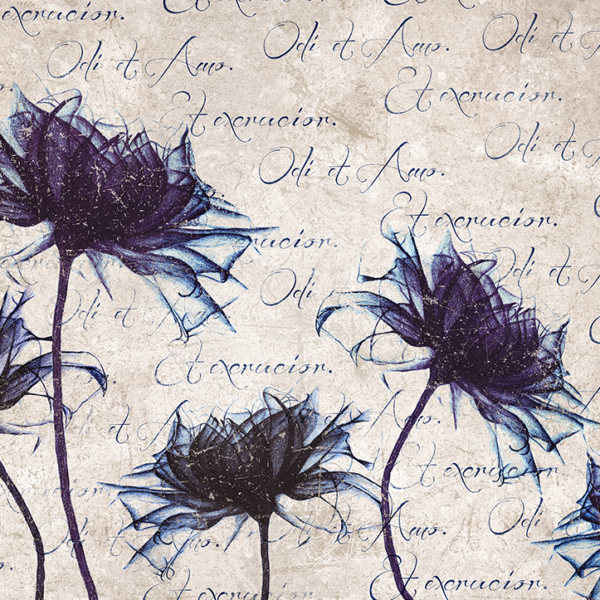 excrucior.
Odi et Amo.
Odi et
Odi et Amo.
Et excrucior.
Et excrucior.
Odi et
Odi et Amo.
Et excrucior.
excrucior.
Odi et
Odi
Odi et
Et excrucior.
et
Et excrucior.
Odi et Amo.
Odi
Et excrucior.
Et excrucior.